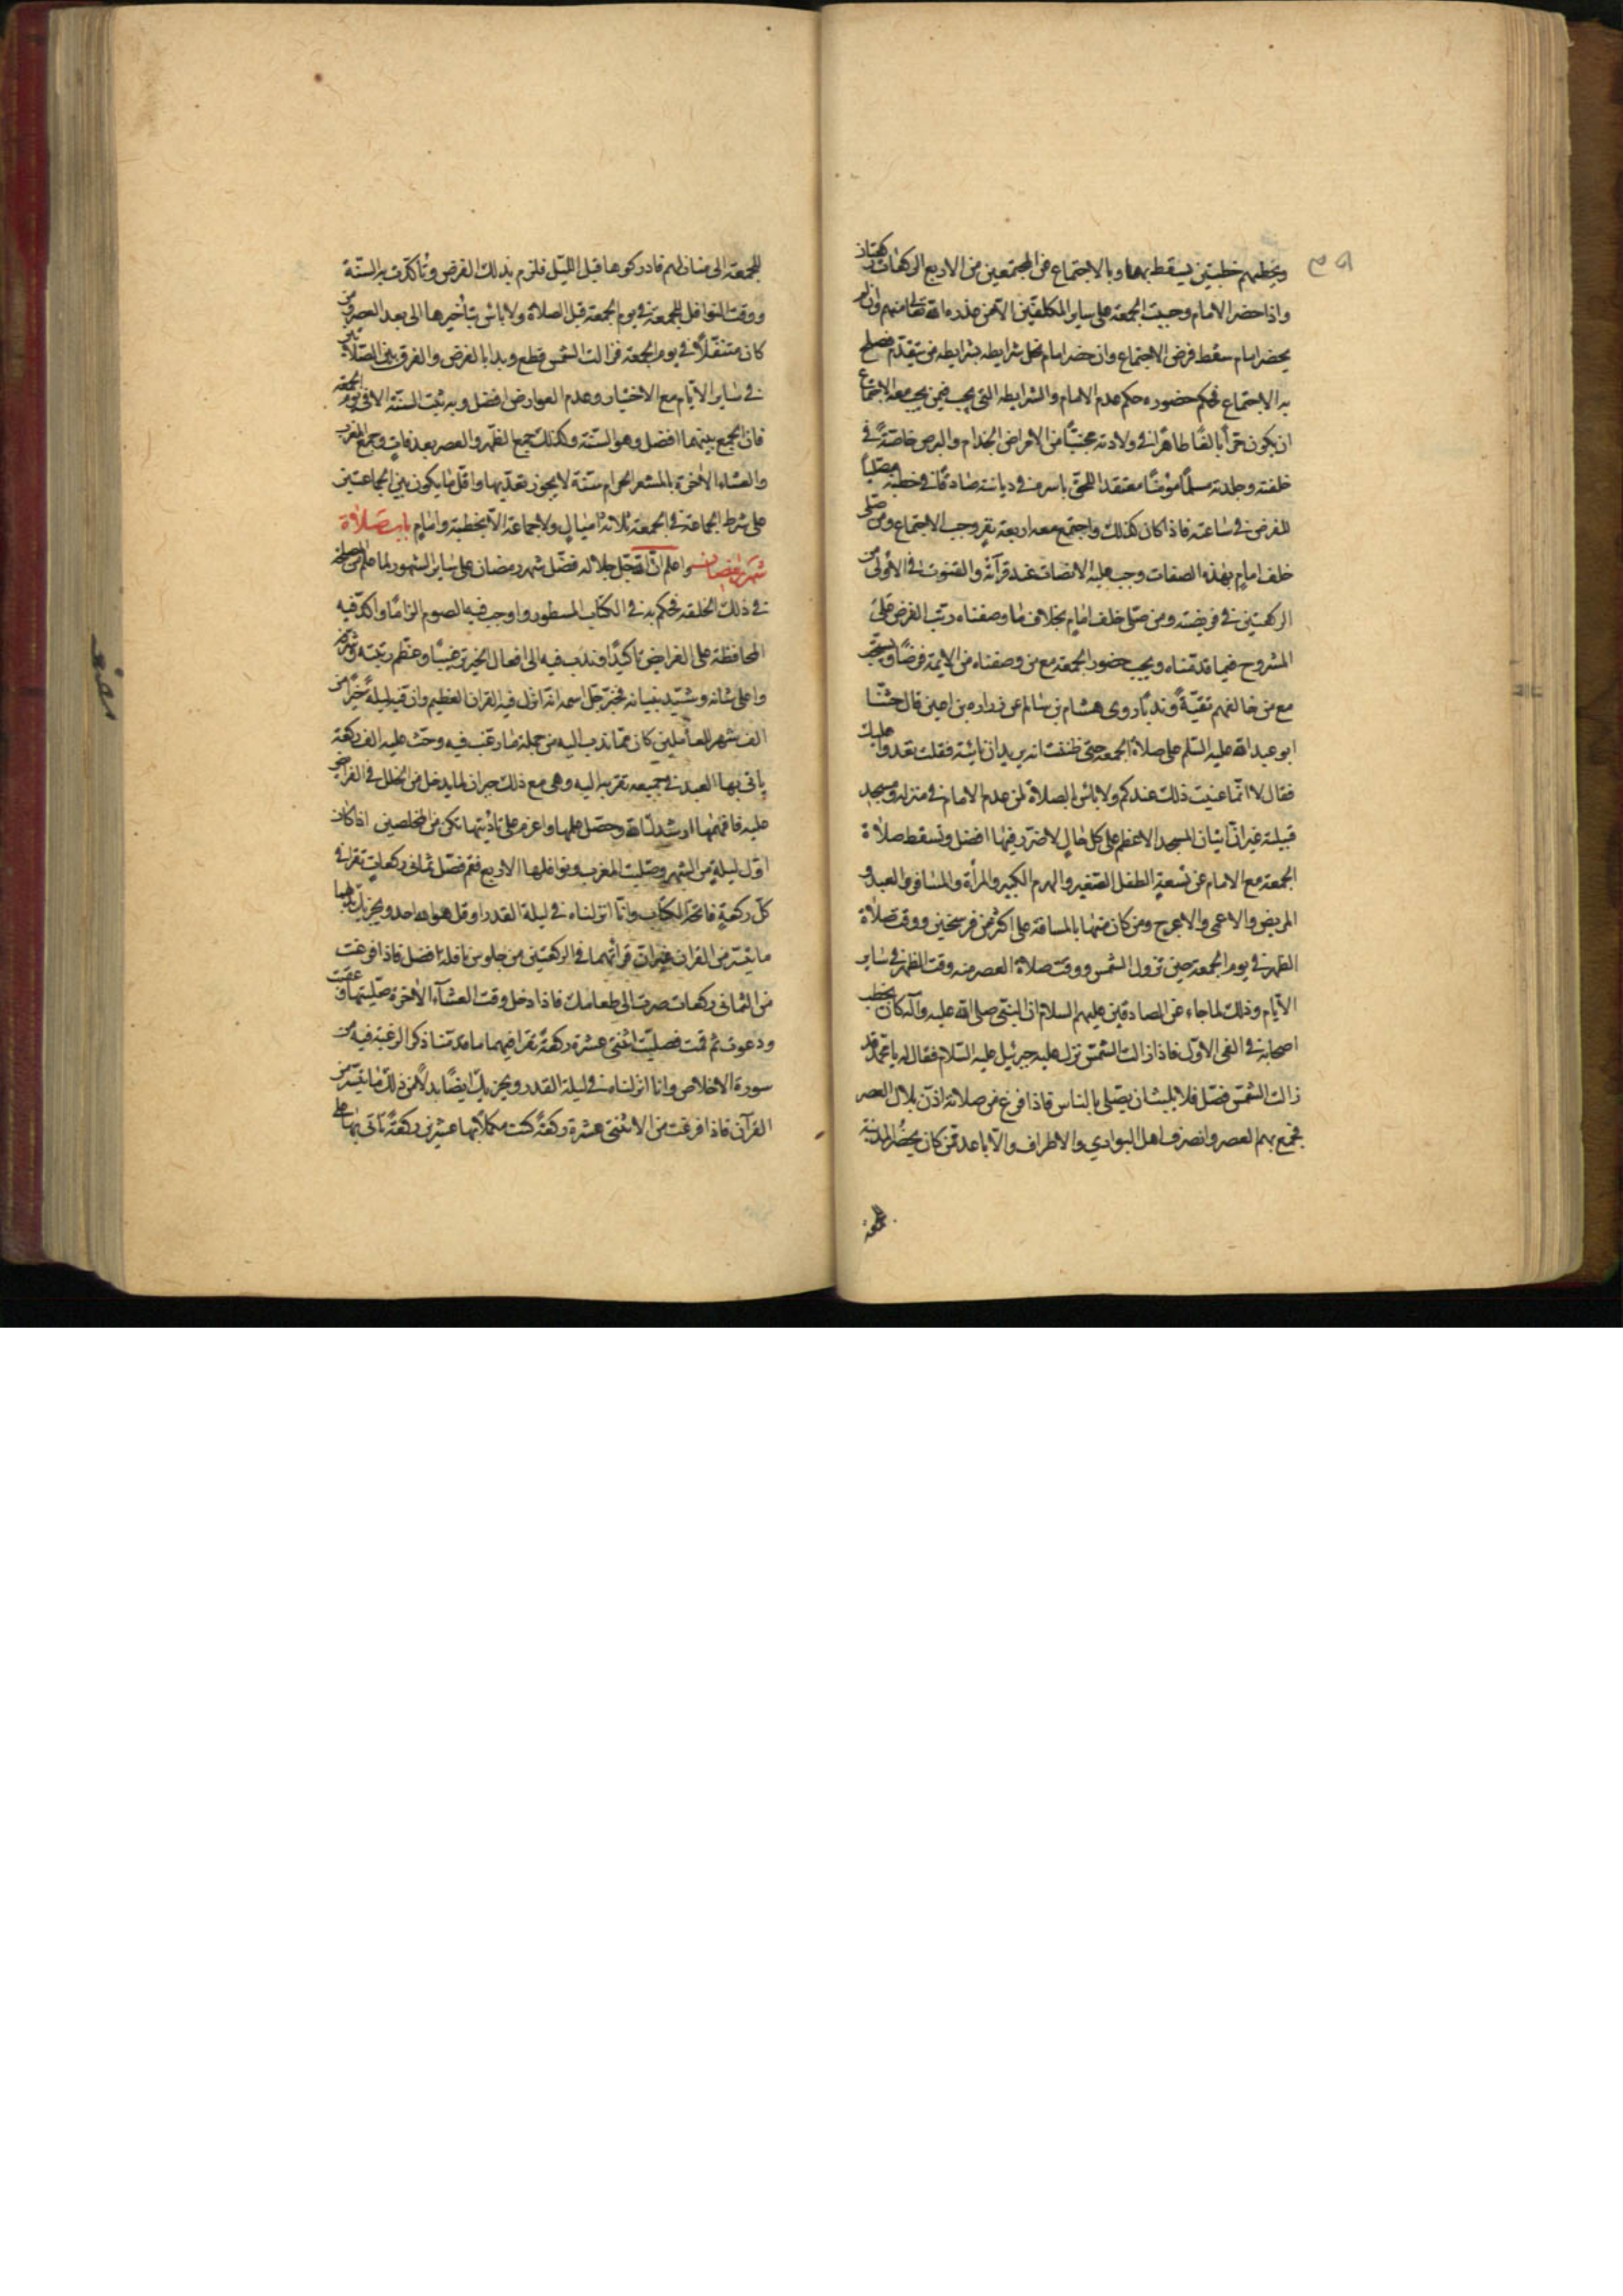 ويخطبهم خطبتين يسقط بهما وبالاجتماع عن المجتمعين من الاربع الركعات ركعتان
واذا حضر الامام وجبت الجمعة على ساير المكلفين الا من عذره الله تعالى منهم وان لم
يحضر امام سقط فرض الاجتماع وان حضر امام يخل شرايطه بشرايطه من يتقدم فيصلح
به الاجتماع فحكم حضوره حكم عدم الامام والشرايط التى يجب فيمن يجب معه الاجتماع
ان يكون حرا بالغا طاهرا فى ولادته مجنبا من الامراض الجذام والبرص خاصة فى
خلقته وجلدته مسلما مؤمنا معتقدا للحق باسره فى ديانته صادقا فى خطبته مصليا
للفرض فى ساعته فاذا كان كذلك واجتمع معه اربعة نفر وجب الاجتماع ومن صلى
خلف امام بهذه الصفات وجب عليه الانصات عند قرآئته والقنوت فى الاولى من
الركعتين فى فريضته ومن صلى خلف امام بخلاف ما وصفناه رتب الفرض على
المشروح فيما قدمناه ويجب حضور الجمعة مع من وصفناه من الايمة فرضا ويستحب
مع من خالفهم تقية وندبا روى هشام بن سالم عن زرارة بن اعين قال حثنا
ابو عبد الله عليه السلم على صلاة الجمعة حتى ظننت انه يريد ان ناتيه فقلت نغدوا عليك
فقال لا انما عنيت ذلك عندكم ولا باس بالصلاة لمن عدم الامام فى منزله ومسجد
قبيلته غير ان اتيان المسجد الاعظم على كل حال لا ضرر فيها افضل وتسقط صلاة
الجمعة مع الامام عن تسعة الطفل الصغير والهرم الكبير والمرأة والمسافر والعبد و
المريض والاعمى والاعرج ومن كان منها بالمسافة على اكثر من فرسخين ووقت صلاة
الظهر فى يوم الجمعة حين تزول الشمس ووقت صلاة العصر منه وقت الظهر فى ساير
الايام وذلك لما جاء عن الصادقين عليهم السلام ان النبى صلى الله عليه وآله كان يخطب
اصحابه فى الفى الاول فاذا زالت الشمس نزل عليه جبرئيل عليه السلام فقال له يا محمد قد
زالت الشمس فصل فلا يلبث ان يصلى بالناس فاذا فرغ من صلاته اذن بلال العصر
فجمع بهم العصر وانصرف اهل البوادي والاطراف والاباعد ممن كان يحضر المدينة
للجمعة
للجمعة الى منازلهم فادركوها قبل الليل فلزم بذلك الفرض وتاكدت به السنة
ووقت النوافل للجمعة فى يوم الجمعة قبل الصلاة ولا باس بتأخيرها الى بعد العصر ومن
كان متنفلا فى يوم الجمعة فزالت الشمس قطع وبدا بالفرض والفرق بين الصلاتين
فى ساير الايام مع الاختيار وعدم العوارض افضل وبه ثبت السنة الا فى يوم الجمعة
فان الجمع بينهما افضل وهو السنة وكذلك جمع الظهر والعصر بعرفات وجمع المغرب
والعشاء الاخرة بالمشعر الحرام سنة لا يجوز تعديها واقل ما يكون بين الجماعتين
على شرط الجماعة فى الجمعة ثلاثة اميال ولا جماعة الا بخطبة وامام باب صلاة
شهر رمضان واعلم ان الله جل جلاله فضل شهر رمضان على ساير الشهور لما علم من المصلحة
فى ذلك لخلقه فحكم به فى الكتاب المسطور واوجب فيه الصوم الزاما واكد فيه
المحافظة على الفرايض تاكيدا وندب فيه الى افعال الخير ترغيبا وعظم رتبته وشرفه
واعلى شانه وشيد بنيانه فخبر جل اسمه انه انزل فيه القران العظيم وان فيه ليلة خيرا من
الف شهر للعاملين كان مما ندب اليه من جملة ما رغب فيه وحث عليه الف ركعة
ياتى بها العبد فى جميعه تقربه اليه وهى مع ذلك جبران لما يدخل من الخلل فى الفرايض
عليه فافهمها ارشدك الله وحصل علمها واعزم على تاديتها تكن من المخلصين اذا كان
اول ليلة من الشهر وصليت المغرب ونوافلها الاربع فقم فصل ثمانى ركعات تقرا فى
كل ركعة فاتحة الكتاب وانا انزلناه فى ليلة القدر او قل هو الله احد ويجزيك بدلهما
ما تيسر من القران غير ان قراتهما فى الركعتين من جلوس نافلة افضل فاذا فرغت
من الثمانى ركعات صرت الى طعامك فاذا دخل وقت العشآء الاخرة صليتها وعقبت
ودعوت ثم قمت فصليت اثنتى عشرة ركعة تقرا فيهما ما قدمنا ذكر الرغبة فيه من
سورة الاخلاص وانا انزلناه فى ليلة القدر ويجزيك ايضا بدلا من ذلك ما تيسر من
القرآن فاذا فرغت من الاثنتى عشرة ركعة كنت مكملا بها عشرين ركعة تاتى بها على